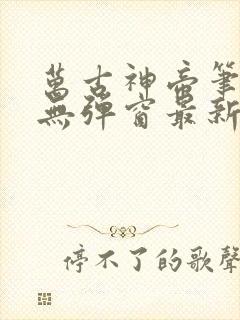 萬古神帝筆
無彈窗最新
停不了的歌聲